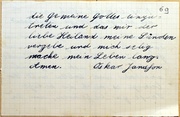 69
die gemeine Gottes einzu-
treten und das mir der
liebe Heiland meine Sünden
vergebe und mich selig
mache mein Leben lang.
Amen. Oskar Jansson